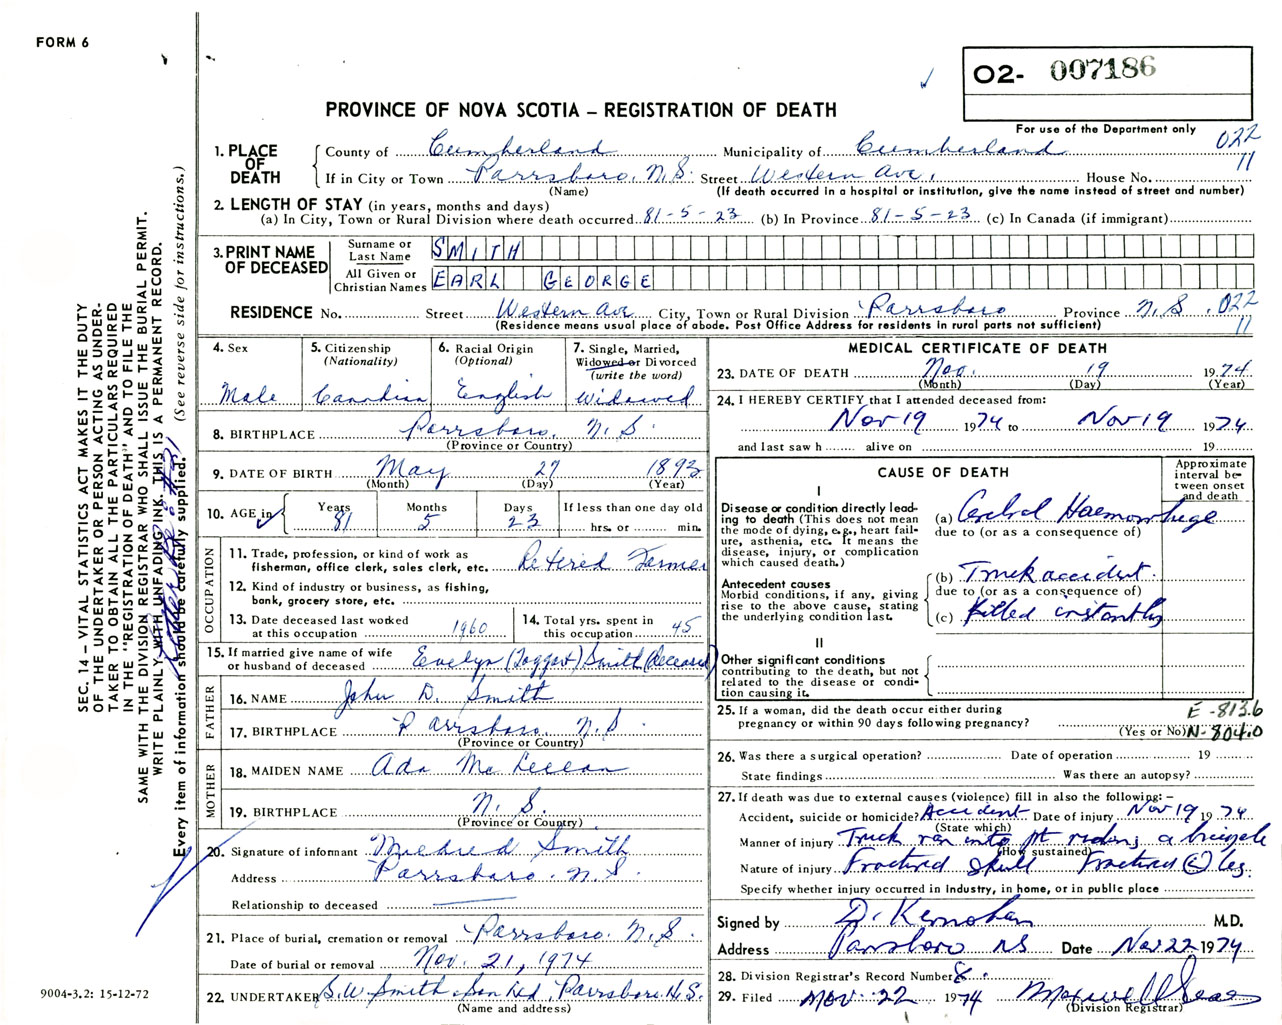 FORM 6
O2- 007186
PROVINCE OF NOVA SCOTIA – REGISTRATION OF DEATH
For use of the Department only
022
11
1. PLACE OF DEATH
County of Cumberland Municipality of Cumberland
If in City or Town Parrsboro, N.S. Street Western Ave. House No.
(Name) (If death occurred in a hospital or institution, give the name instead of street and number)
2. LENGTH OF STAY (in years, months and days)
(a) In City, Town or Rural Division where death occurred 81-5-23 (b) In Province 81-5-23 (c) In Canada (if immigrant)
3. PRINT NAME OF DECEASED
Surname or Last Name SMITH
All Given or Christian Names EARL GEORGE
RESIDENCE No. Street Western Ave City, Town or Rural Division Parrsboro Province N.S. 022
(Residence means usual place of abode. Post Office Address for residents in rural parts not sufficient) 11
4. Sex
Male
5. Citizenship
(Nationality)
Canadian
6. Racial Origin
(Optional)
English
7. Single, Married,
Widowed or Divorced
(write the word)
Widowed
8. BIRTHPLACE Parrsboro, N.S.
(Province or Country)
9. DATE OF BIRTH May 27 1893
(Month) (Day) (Year)
10. AGE in
Years Months Days If less than one day old
81 5 23 hrs. or min.
OCCUPATION
11. Trade, profession, or kind of work as
fisherman, office clerk, sales clerk, etc. Retired Farmer
12. Kind of industry or business, as fishing,
bank, grocery store, etc.
13. Date deceased last worked
at this occupation 1960
14. Total yrs. spent in
this occupation 45
15. If married give name of wife
or husband of deceased Evelyn (Taggart) Smith (deceased)
FATHER
16. NAME John D. Smith
17. BIRTHPLACE Parrsboro, N.S.
(Province or Country)
MOTHER
18. MAIDEN NAME Ada McLellan
19. BIRTHPLACE N.S.
(Province or Country)
20. Signature of informant Mildred Smith
Address Parrsboro N.S.
Relationship to deceased
21. Place of burial, cremation or removal Parrsboro, N.S.
Date of burial or removal Nov. 21, 1974
22. UNDERTAKER S.W. Smith Son Ltd, Parrsboro, N.S.
(Name and address)
MEDICAL CERTIFICATE OF DEATH
23. DATE OF DEATH Nov. 19 1974
(Month) (Day) (Year)
24. I HEREBY CERTIFY that I attended deceased from:
Nov 19 1974 to Nov 19 1974
and last saw h alive on 19
CAUSE OF DEATH
Approximate interval between onset and death
I
Disease or condition directly leading to death (This does not mean the mode of dying, e.g., heart failure, asthenia, etc. It means the disease, injury, or complication which caused death.)
(a) Cerebral Haemorrhage
due to (or as a consequence of)
Antecedent causes
Morbid conditions, if any, giving rise to the above cause, stating the underlying condition last.
(b) Truck accident.
due to (or as a consequence of)
(c) Killed instantly
II
Other significant conditions
contributing to the death, but not related to the disease or condition causing it.
25. If a woman, did the death occur either during
pregnancy or within 90 days following pregnancy?
(Yes or No)
E-813.6
N-804.0
26. Was there a surgical operation? Date of operation 19
State findings Was there an autopsy?
27. If death was due to external causes (violence) fill in also the following: –
Accident, suicide or homicide? Accident Date of injury Nov 19 1974
(State which)
Manner of injury Truck ran into pt riding a bicycle
(How sustained)
Nature of injury Fractured skull Fractured (L) leg.
Specify whether injury occurred in industry, in home, or in public place
Signed by D. Kernohan M.D.
Address Parrsboro NS Date Nov 22 1974
28. Division Registrar's Record Number 8.
29. Filed Nov. 22 1974
(Division Registrar)
SEC. 14 – VITAL STATISTICS ACT MAKES IT THE DUTY
OF THE UNDERTAKER OR PERSON ACTING AS UNDER-
TAKER TO OBTAIN ALL THE PARTICULARS REQUIRED
IN THE "REGISTRATION OF DEATH" AND TO FILE THE
SAME WITH THE DIVISION REGISTRAR WHO SHALL ISSUE THE BURIAL PERMIT.
WRITE PLAINLY WITH UNFADING INK. THIS IS A PERMANENT RECORD.
Every item of information should be carefully supplied. (See reverse side for instructions.)
9004-3.2: 15-12-72